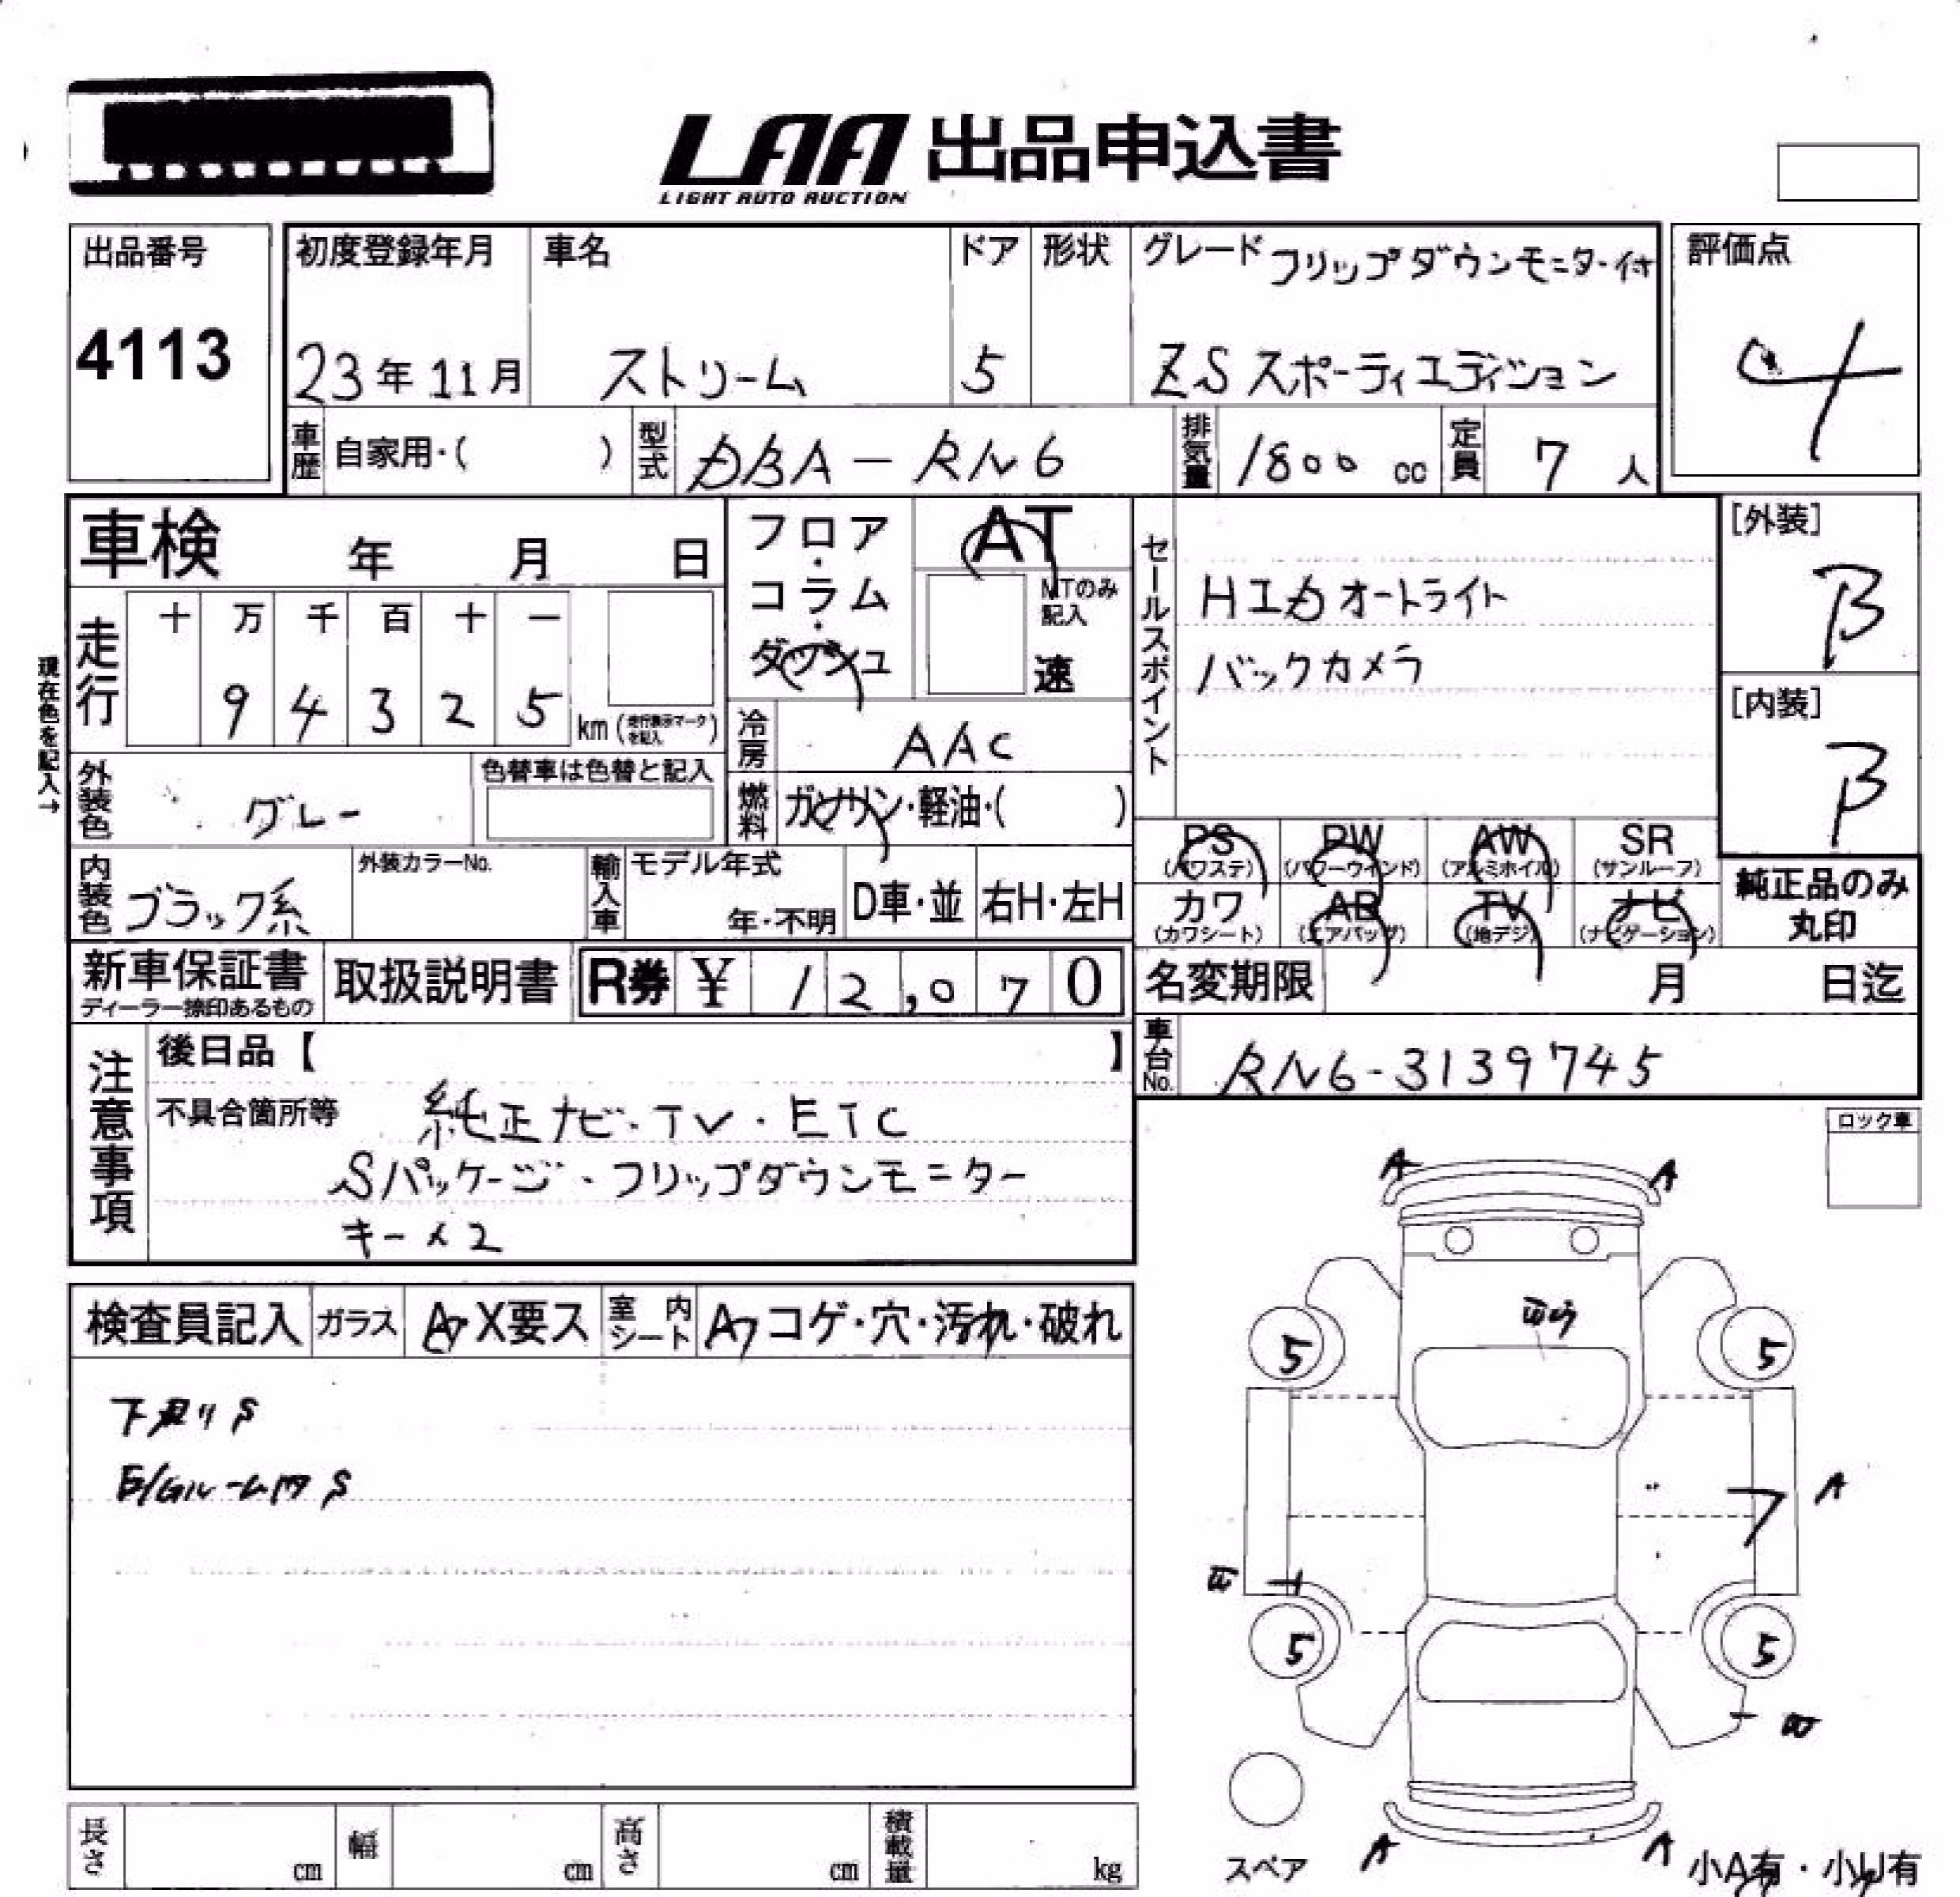 LAA 出品申込書
LIGHT AUTO AUCTION
出品番号
4113
初度登録年月
23年11月
車名
ストリーム
ドア
5
形状
グレード フリップダウンモニター付
ZS スポーティエディション
評価点
4
車歴 自家用・( )
型式 DBA-RN6
排気量 1800 cc
定員 7 人
車検 年 月 日
フロア・コラム・ダッシュ
AT
MTのみ記入
速
セールスポイント
HIDオートライト
バックカメラ
[外装]
B
[内装]
B
現在色を記入→
走行
十 万 千 百 十 一
9 4 3 2 5 km(走行表示マークを記入)
冷房 AAC
燃料 ガソリン・軽油・( )
外装色 グレー
色替車は色替と記入
内装色 ブラック系
外装カラーNo.
輸入車
モデル年式
年・不明
D車・並
右H・左H
PS (パワステ)
PW (パワーウインド)
AW (アルミホイル)
SR (サンルーフ)
カワ (カワシート)
AB (エアバッグ)
TV (地デジ)
ナビ (ナビゲーション)
純正品のみ
丸印
新車保証書
ディーラー捺印あるもの
取扱説明書
R券 ¥ 12,070
名変期限 月 日迄
車台No. RN6-3139745
注意事項
後日品【 】
不具合箇所等 純正ナビ・TV・ETC
Sパッケージ・フリップダウンモニター
キー×2
ロック車
検査員記入 ガラス A・X要ス
室内シート A・コゲ・穴・汚れ・破れ
下廻りS
E/Gルーム内S
A
A
5
5
A
5
5
A
A
スペア
小A有・小U有
長さ cm
幅 cm
高さ cm
積載量 kg